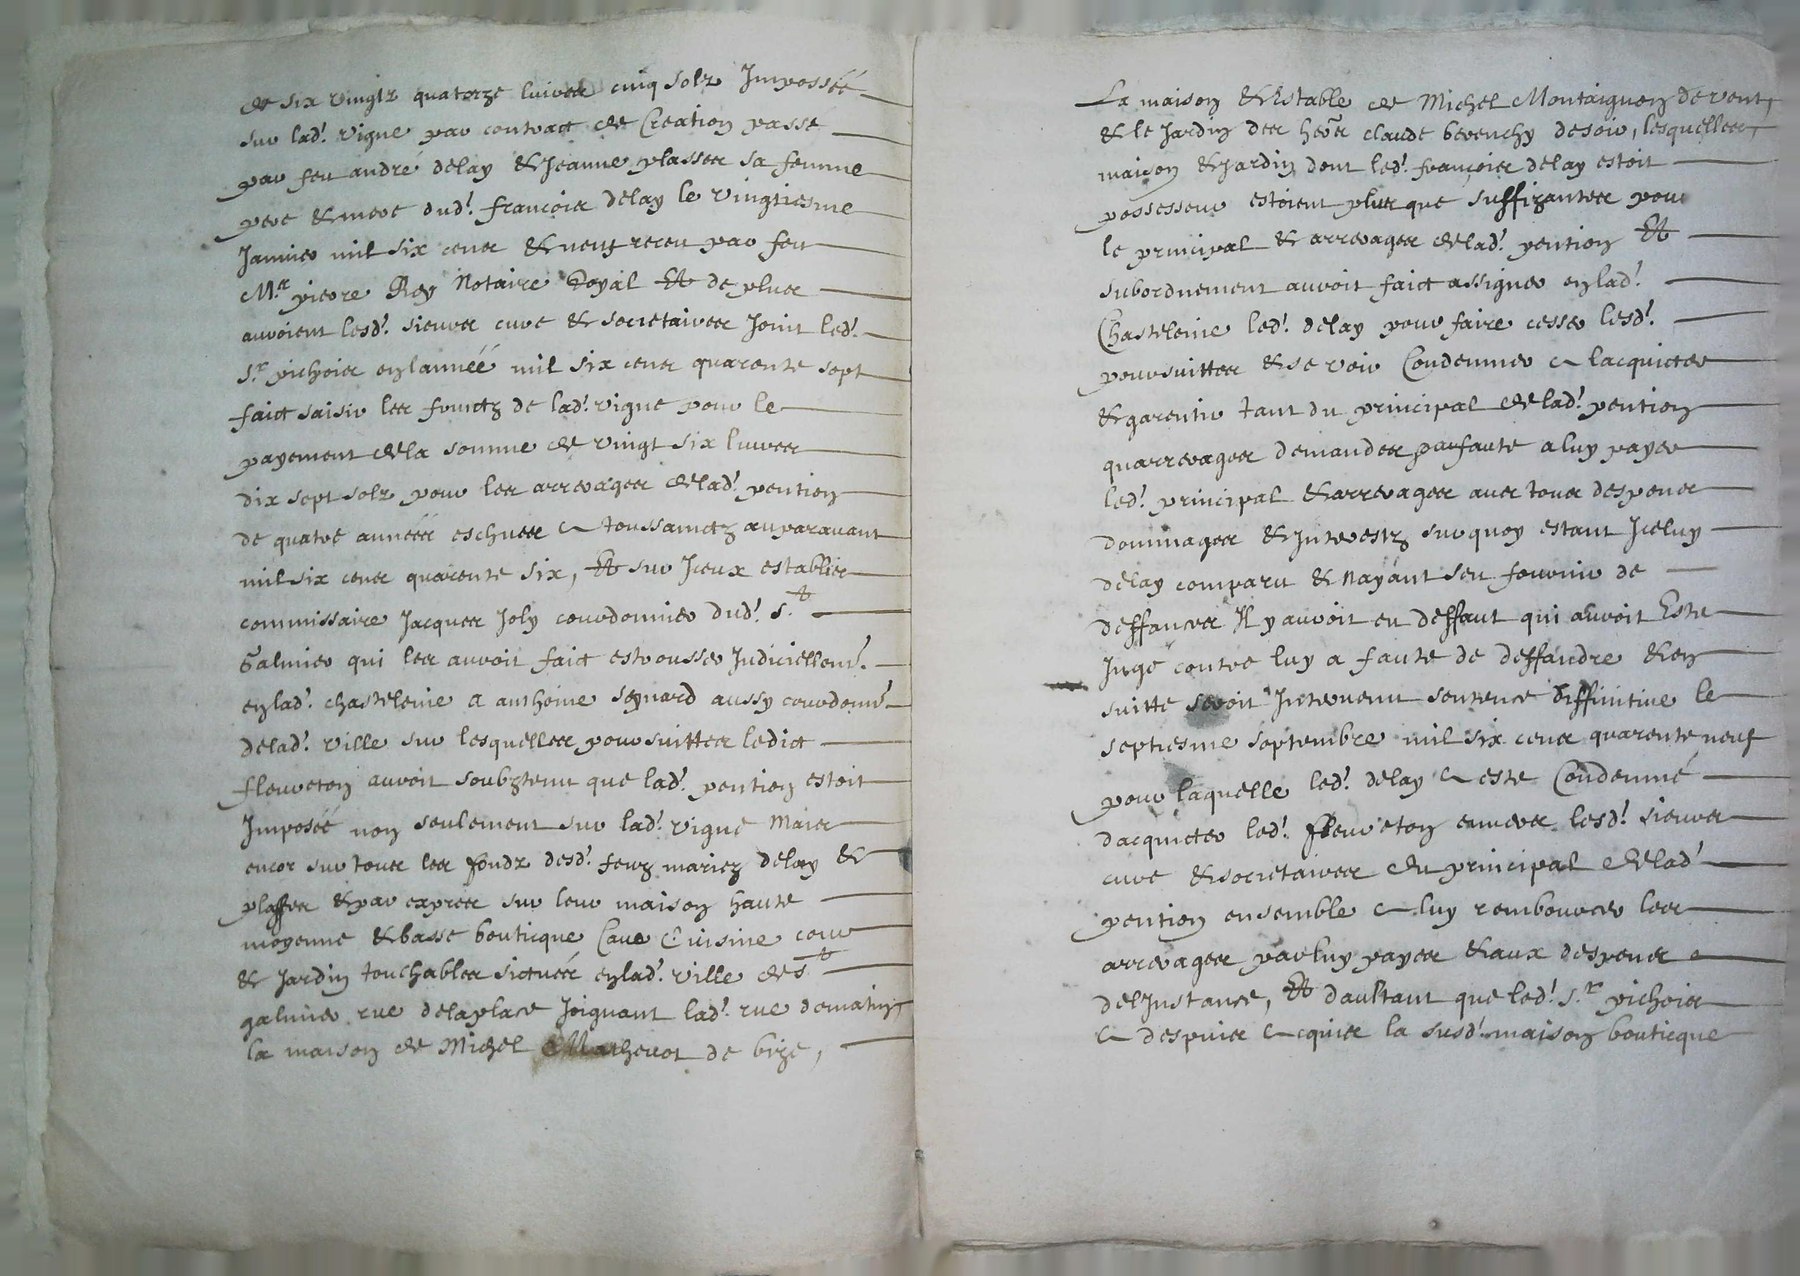 de six vingtz quatorze livres cinq solz Imposséé
sur lad.t vigne par contract de Creation passe
par feu andré delay & Jeanne plasses sa femme
pere & mere dud.t françois delay le vingtiesme
Janvier mil six cens & neuf receu par feu
M.re pierre Rey Notaire Royal Et de plus
auroient lesd.t sieurs curé & societaires Joint led.t
S.r pichois en lannéé mil six cens quarente sept
faict saisir les fruictz de lad.t vigne pour le
payement de la somme de vingt six livres
dix sept solz pour les arrerages de lad.t pention
de quatre annéés escheues a toussainctz auparavant
mil six cens quarente six, Et sur Iceux establir
commissaire Jacques Joly courdonnier dud.t S.t
Galmier qui les auroit faict estrousser Judiciellem.t
en lad.t chastelenie a anthoine signard aussy courdonn.r
de lad.t ville sur lesquelles poursuittes ledict
fleureton auroit soubztenu que lad.t pention estoit
Imposéé non seulement sur lad.t vigne Mais
encor sur tous les fondz desd.t feuz mariez delay &
plasses & par expres sur leur maison haute
moyenne & basse bouticque Cave Cuisine cour
& Jardin touchables situéés en lad.t ville de S.t
galmier rue de la place Joignant lad.t rue de matin,
la maison de Michel Mathevot de bize,
La maison & Estable de Michel Montaignon de vent,
& le Jardin des her.s claude bevenchy de soir, lesquelles
maison & Jardin dont led.t françois delay estoit
possesseur estoient plus que suffizantes pour
le principal & arrerages de lad.t pention Et
subordnement auroit faict assigner en lad.t
Chastelenie led.t delay pour faire cesser lesd.t
poursuittes & se voir Condemner a lacquicter
& garentir tant du principal de lad.t pention
quarrerages demandes par faute a luy payer
led.t principal & arrerages avec tous despens
dommages & Interestz sur quoy estant Iceluy
delay comparu & nayant seu fournir de
deffances Il y auroit eu deffaut qui auroit Este
Jugé contre luy a faute de deffandre & en
suitte seroit Intervenu sentence diffinitive le
septiesme septembre mil six cens quarente neuf
pour laquelle led.t delay a este Condemné
dacquicter led.t fleureton envers lesd.t sieurs
curé & societaires du principal de lad.t
pention ensemble a luy rembourcer les
arrerages par luy payes & aux despens
de lInstance, Et daultant que led.t S.r pichois
a despuis acquis la susd.t maison bouticque